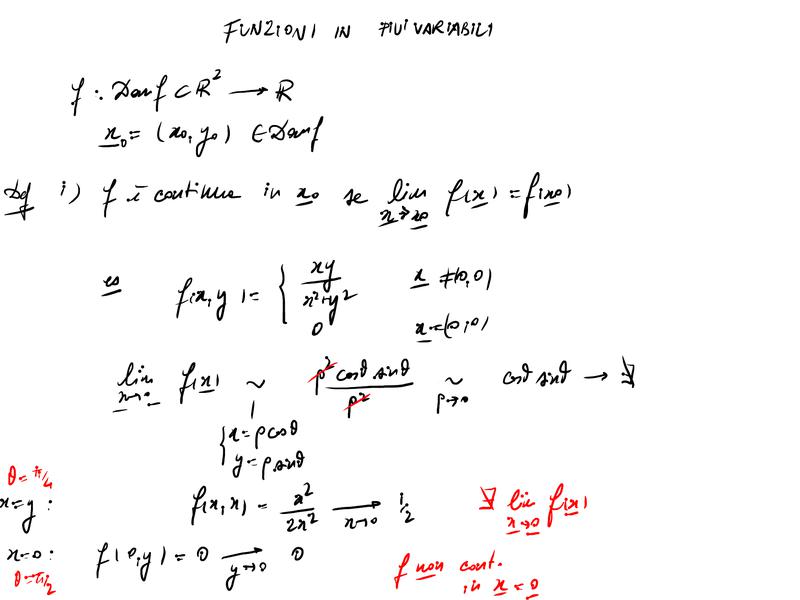 FUNZIONI IN PIU' VARIABILI
f : Dom f ⊂ R² → R
x₀ = (x₀, y₀) ∈ Dom f
Def i) f è continua in x₀ se lim x→x₀ f(x) = f(x₀)
es f(x,y) = { xy / x²+y² x ≠ (0,0)
0 x = (0,0)
lim x→0 f(x) ~ ρ² cosθ sinθ / ρ² ~ ρ→0 cosθ sinθ → ∄
{ x = ρ cosθ
y = ρ sinθ
θ = π/4
x=y : f(x,x) = x² / 2x² → x→0 1/2 ∄ lim x→0 f(x)
x=0 : f(0,y) = 0 → y→0 0
θ = π/2 f non cont.
in x = 0